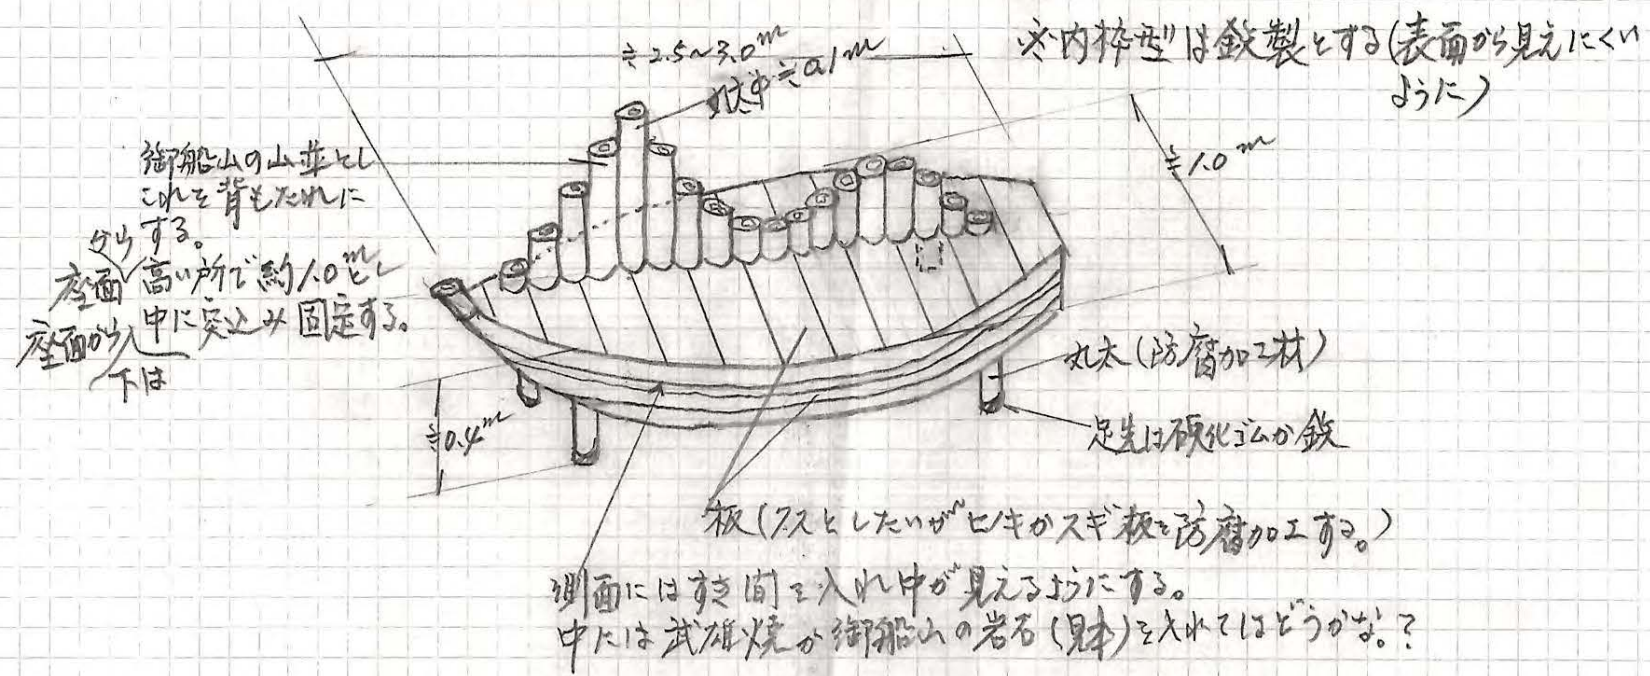 ≒2.5~3.0m
丸太巾≒0.1m
※内枠型は鉄製とする(表面から見えにくい
ように)
≒1.0m
御船山の山並とし
これを背もたれに
する。
座面から高い所で約1.0mとし
座面から下は中に突込み固定する。
丸太(防腐加工材)
≒0.4m
足先は硬化ゴムか鉄
板(クスとしたいがヒノキかスギ板を防腐加工する。)
側面にはすき間を入れ中が見えるようにする。
中には武雄焼か御船山の岩石(見本)を入れてはどうかな。?